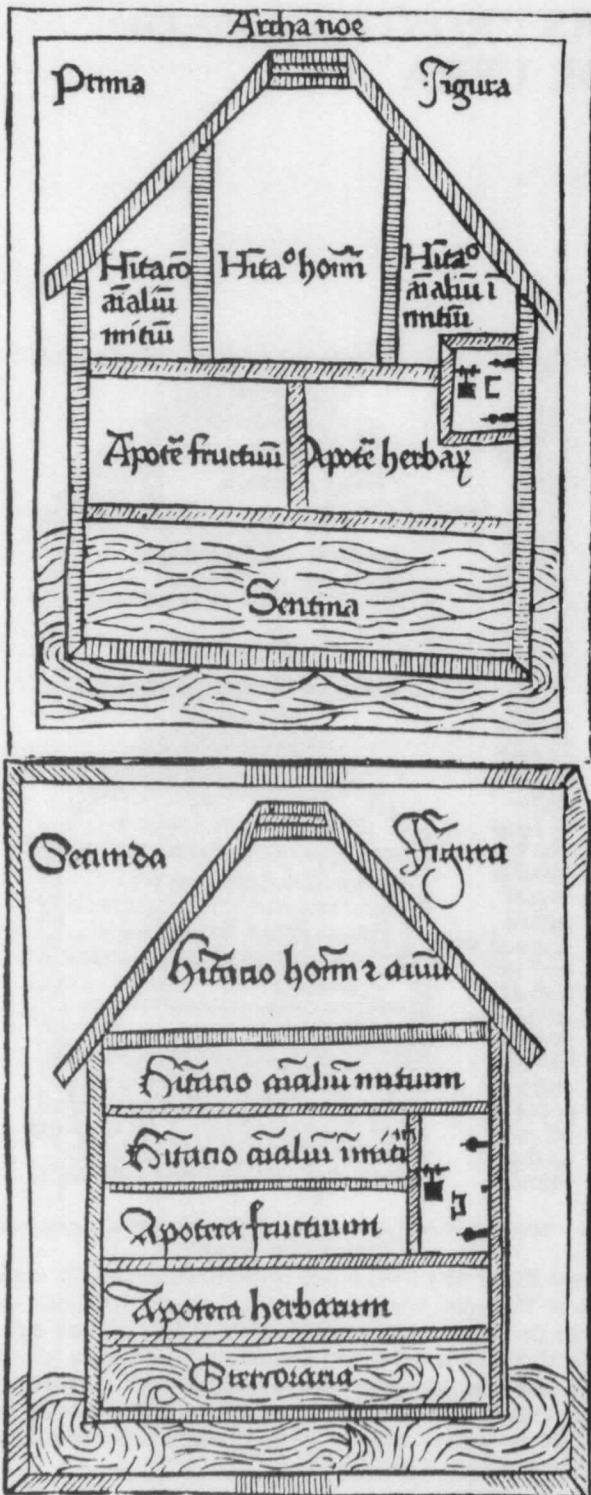 Archa noe
Prima Figura
Hītacō
aīaliū
mitiū
Hīta⁰ hoīm̄
Hīta⁰
aīaliū ī
mitiū
Apotē fructuū
Apotē herbaꝝ
Sentina
Secunda Figura
Hītacio hoīm ⁊ aviū
Hītacio aīaliū mitium
Hītacio aīaliū īmiti
Apoteca fructuum
Apoteca herbarum
Stercoraria